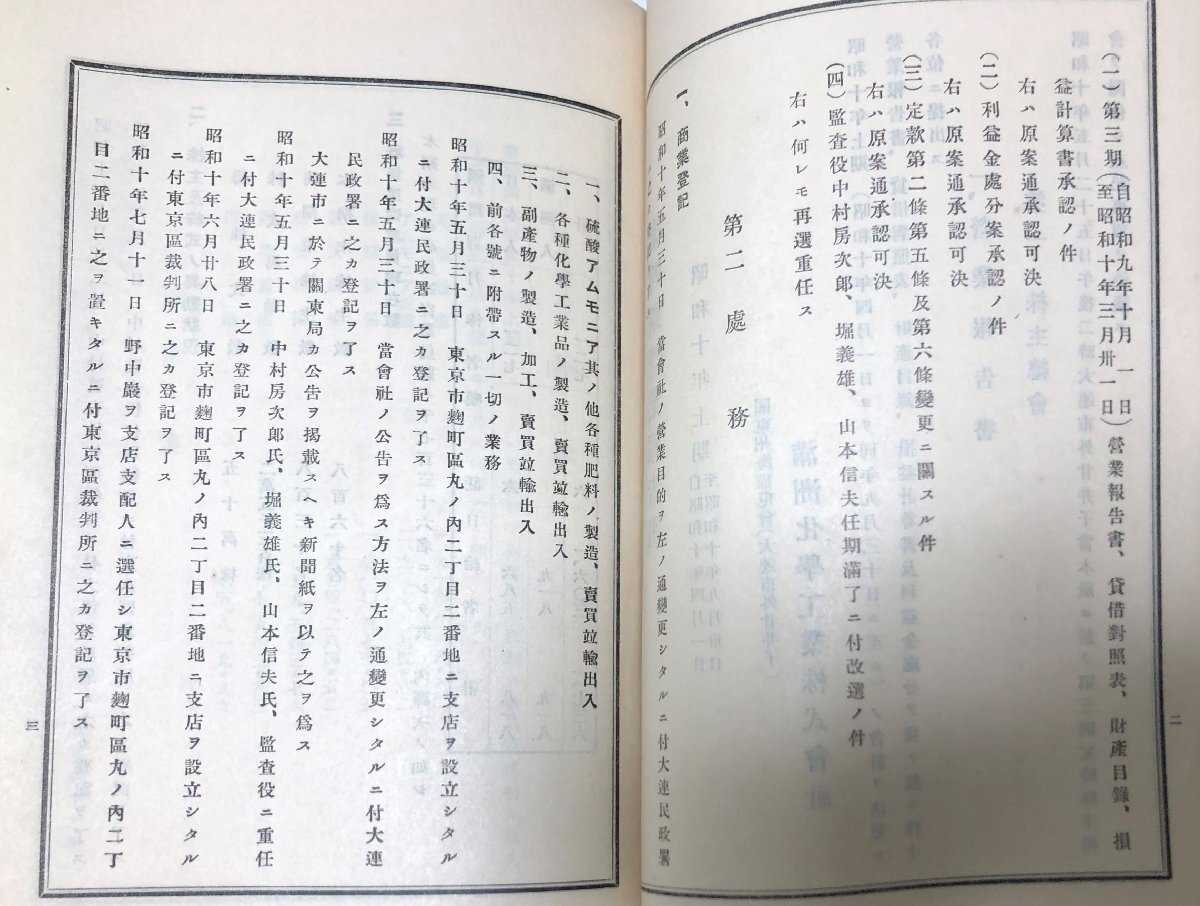 (一) 第三期(自昭和九年十月一日至昭和十年三月卅一日)營業報告書、貸借對照表、財產目錄、損
益計算書承認ノ件
右ハ原案通承認可決
(二) 利益金處分案承認ノ件
右ハ原案通承認可決
(三) 定款第二條第五條及第六條變更ニ關スル件
右ハ原案通承認可決
(四) 監査役中村房次郎、堀義雄、山本信夫任期滿了ニ付改選ノ件
右ハ何レモ再選重任ス
第二 處務
一、商業登記
昭和十年五月三十日 當會社ノ營業目的ヲ左ノ通變更シタルニ付大連民政署
二
一、硫酸アムモニア其ノ他各種肥料ノ製造、賣買竝輸出入
二、各種化學工業品ノ製造、賣買竝輸出入
三、副產物ノ製造、加工、賣買竝輸出入
四、前各號ニ附帶スル一切ノ業務
昭和十年五月三十日 東京市麴町區丸ノ內二丁目二番地ニ支店ヲ設立シタル
ニ付大連民政署ニ之カ登記ヲ了ス
昭和十年五月三十日 當會社ノ公告ヲ爲ス方法ヲ左ノ通變更シタルニ付大連
民政署ニ之カ登記ヲ了ス
大連市ニ於テ關東局カ公告ヲ揭載スヘキ新聞紙ヲ以テ之ヲ爲ス
昭和十年五月三十日 中村房次郎氏、堀義雄氏、山本信夫氏、監査役ニ重任
ニ付大連民政署ニ之カ登記ヲ了ス
昭和十年六月廿八日 東京市麴町區丸ノ內二丁目二番地ニ支店ヲ設立シタル
ニ付東京區裁判所ニ之カ登記ヲ了ス
昭和十年七月十一日 野中巖ヲ支店支配人ニ選任シ東京市麴町區丸ノ內二丁
目二番地ニ之ヲ置キタルニ付東京區裁判所ニ之カ登記ヲ了ス
三